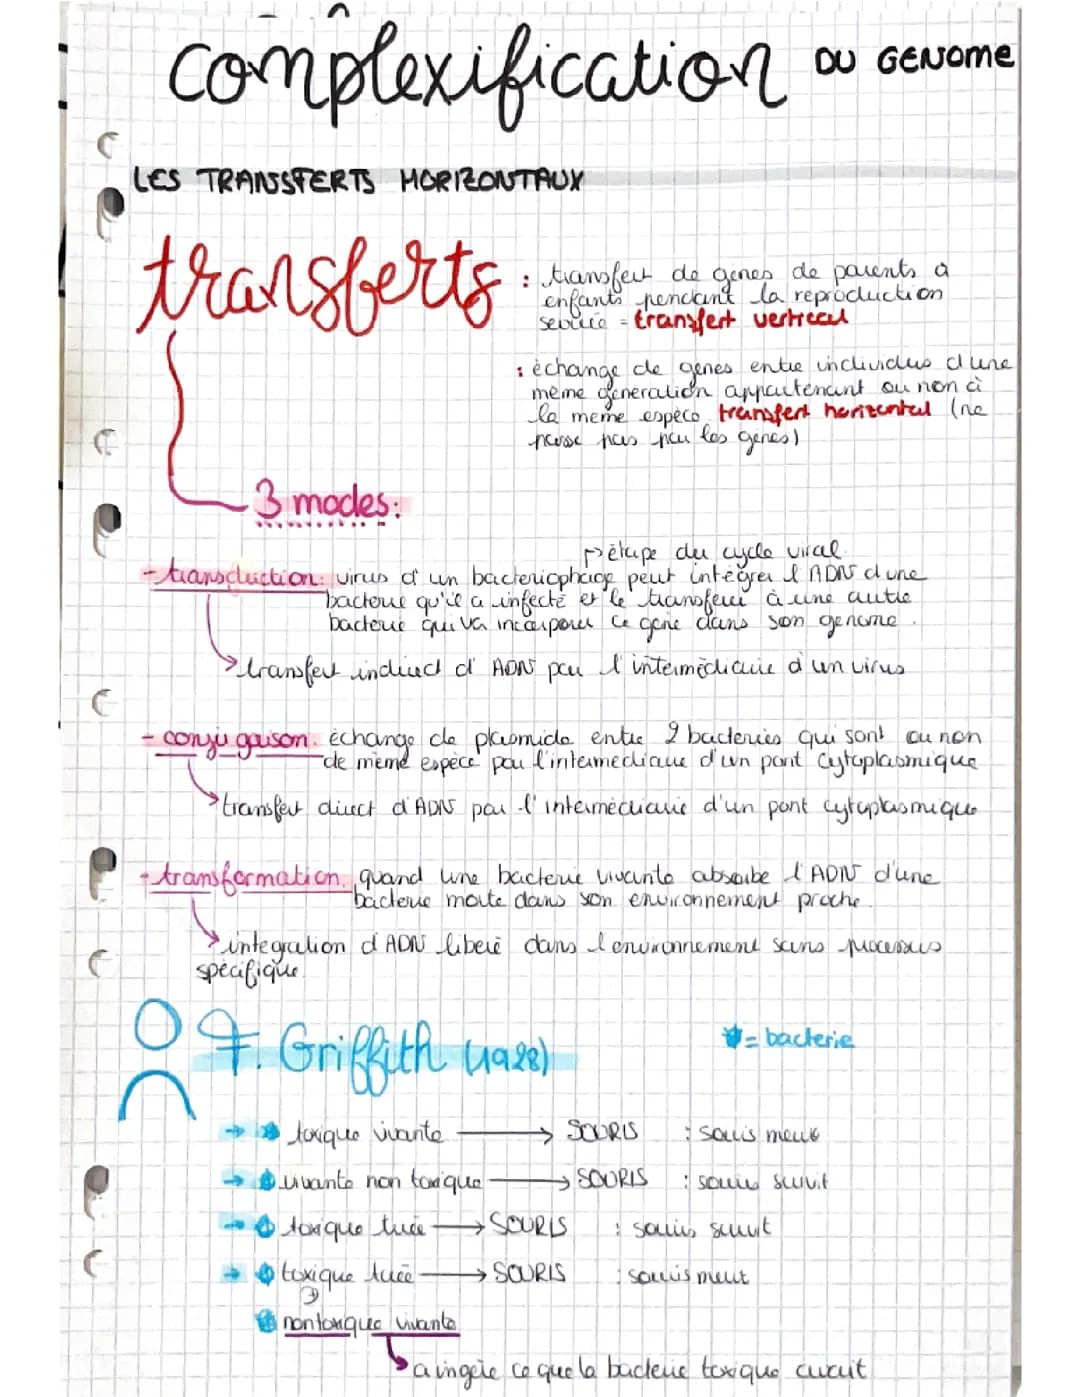 complexification DU GENOME
LES TRANSFERTS HORIZONTAUX
transferts : transfert de genes de parents à
enfants pendant la reproduction
= transfert vertical
: échange de genes entre individus d'une
même génération appartenant ou non à
la meme espèce transfert horizontal (ne
passe pas par les genes)
3 modes:
→ étape du cycle viral
- transduction: virus d'un bacteriophage peut intégrer l'ADN d'une
bacterie qu'il a infecté et le transferer à une autre
bacterie qui va incorporer ce gene dans son genome.
→ transfert indirect d'ADN par l'intermédiaire d'un virus
- conjugaison. échange de plasmide entre 2 bacteries qui sont ou non
de même espèce par l'intermediaire d'un pont cytoplasmique
→ transfert direct d'ADN par l'intermediaire d'un pont cytoplasmique
- transformation. quand une bacterie vivante absorbe l'ADN d'une
bacterie morte dans son environnement proche.
→ integration d'ADN liberé dans l'environnement sans processus
spécifique
F. Griffith (1928)
= bacterie
→ toxique vivante → SOURIS : souris meurt
→ vivante non toxique → SOURIS : souris survit
→ toxique tuée → SOURIS : souris survit
→ toxique tuée → SOURIS : souris meurt
non toxique vivante
→ a ingéré ce que la bacterie toxique avait